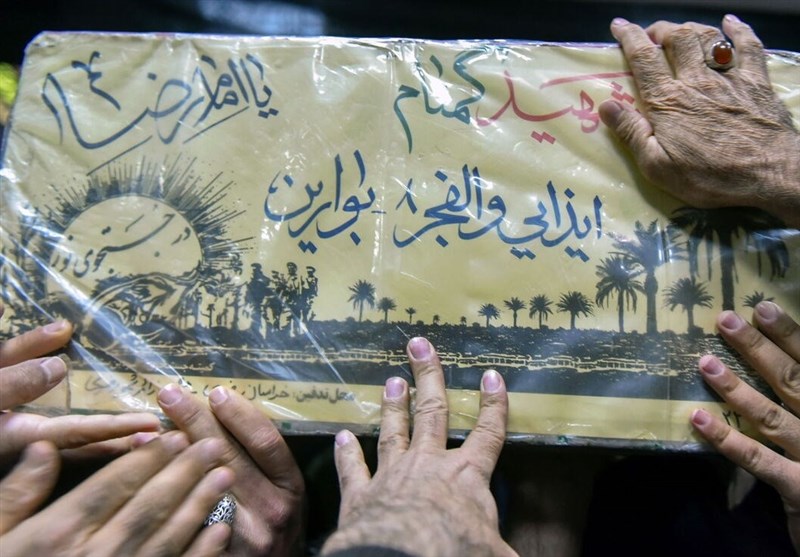 شهید گمنام
یا امام رضا ع
ایذایی والفجر ۸ - بوارین
در جستجوی نور
محل تدفین: خراسان رضوی